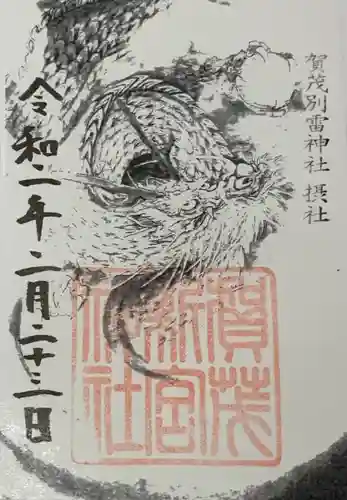 賀茂別雷神社 摂社
令和二年二月二十三日
賀茂
新宮
神社